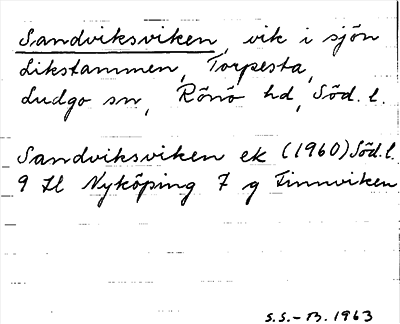 Sandviksviken, vik i sjön
Likstammen, Torpesta,
Ludgo sn, Rönö hd, Söd. l.
Sandviksviken ek (1960) Söd. l.
9 Il Nyköping 7 g Finnviken
S.S.-B. 1963